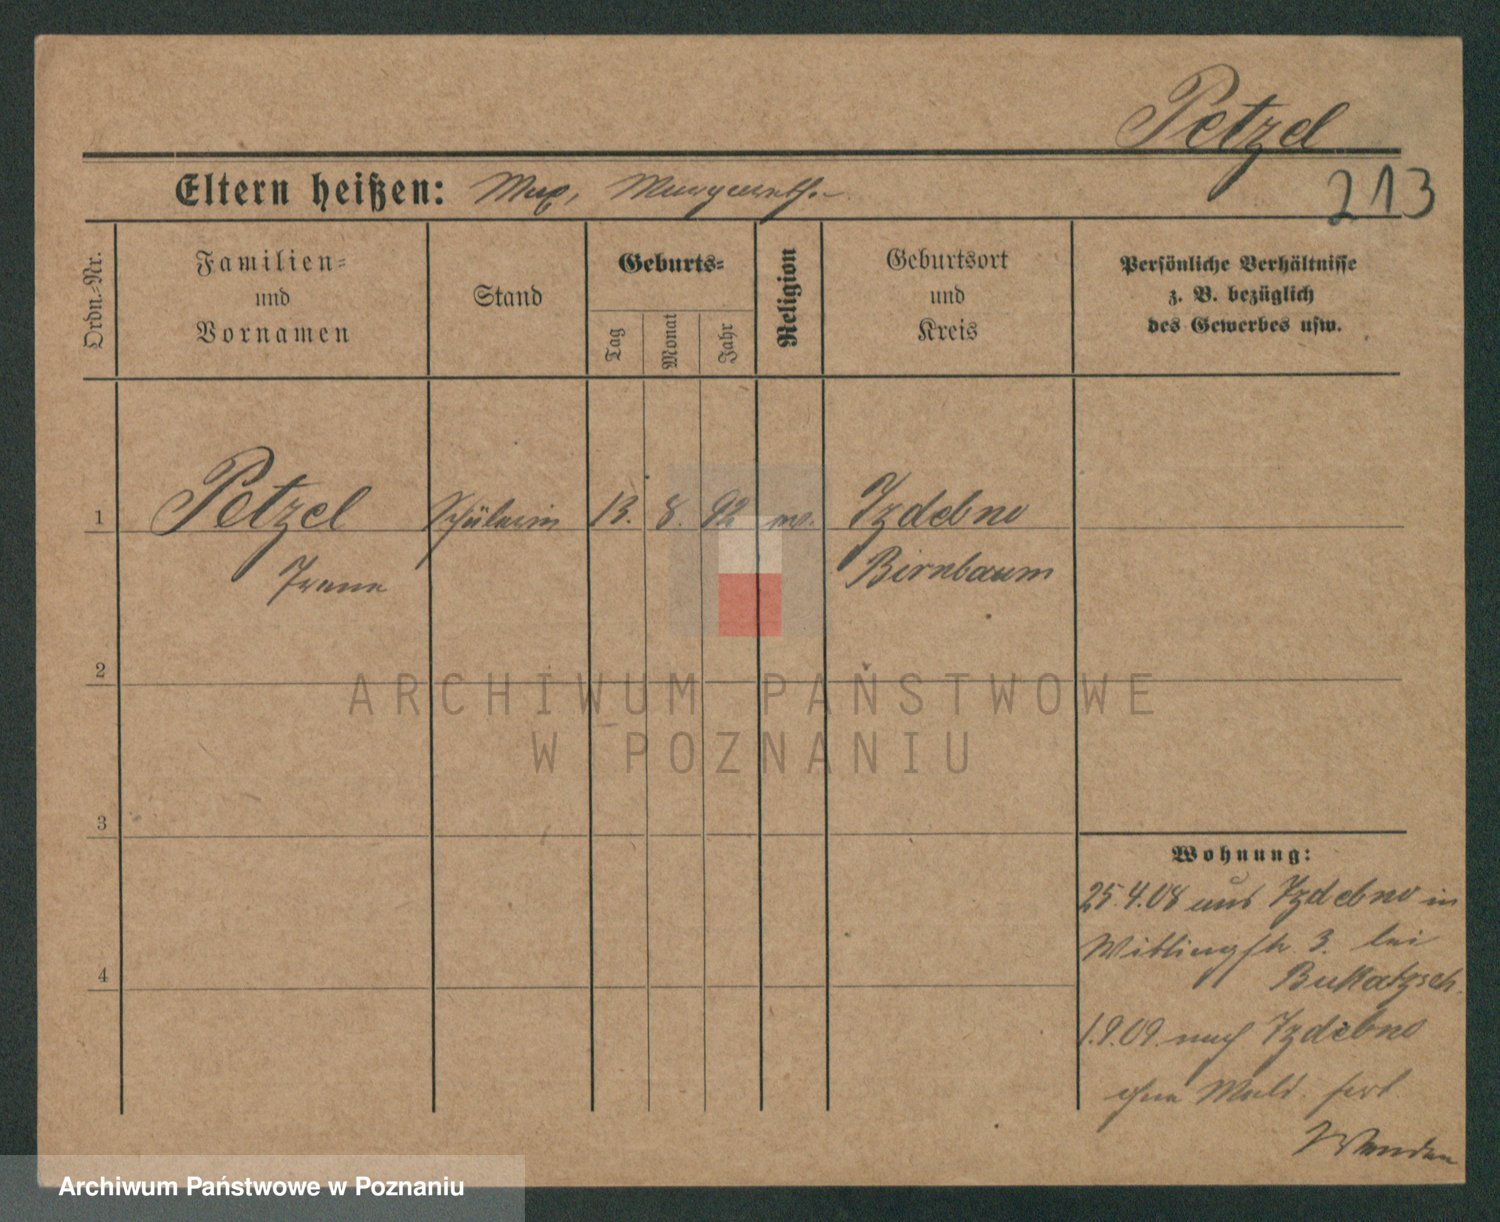 Petzel
213
Eltern heißen: Max, Margareth.
Ordn.-Nr.
Familien-
und
Vornamen
Stand
Geburts-
Tag
Monat
Jahr
Religion
Geburtsort
und
Kreis
Persönliche Verhältnisse
z. B. bezüglich
des Gewerbes usw.
1 Petzel Schülerin 13. 8. 92 Izdebno
Irene Birnbaum
2
3
4
Wohnung:
25.4.08 aus Izdebno in
3. bei
1.9.09. nach Izdebno
ohne Meld. fort
ARCHIWUM PAŃSTWOWE
W POZNANIU
Archiwum Państwowe w Poznaniu